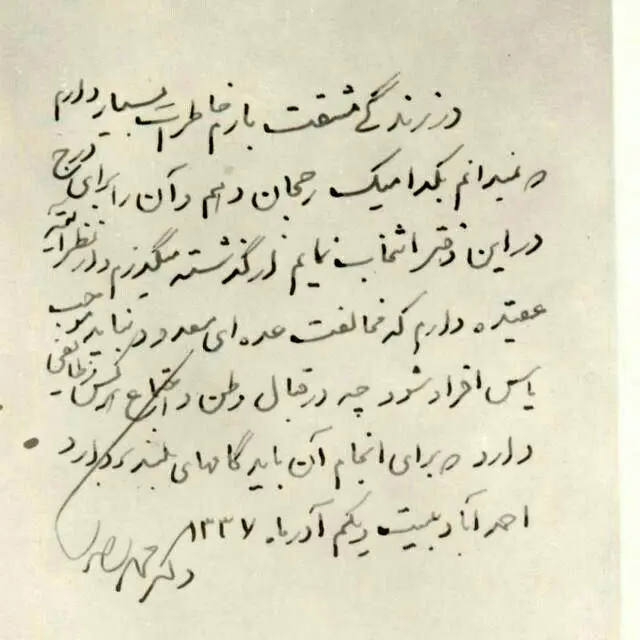 در زندگی مشقت بارم خاطرات بسیار دارم
که نمیدانم بکدامیک رجحان دهم و آن را برای درج
در این دفتر انتخاب نمایم از گذشته میگذرم و از نظر آتیه
عقیده دارم که مخالفت عده ای معدود نباید موجب
یاس افراد شود چه در قبال وطن و اجتماع هر کس وظایفی
دارد که برای انجام آن باید گامهای بلند بردارد
احمدآباد بیست و یکم آذرماه ۱۳۳۷
دکتر محمد مصدق